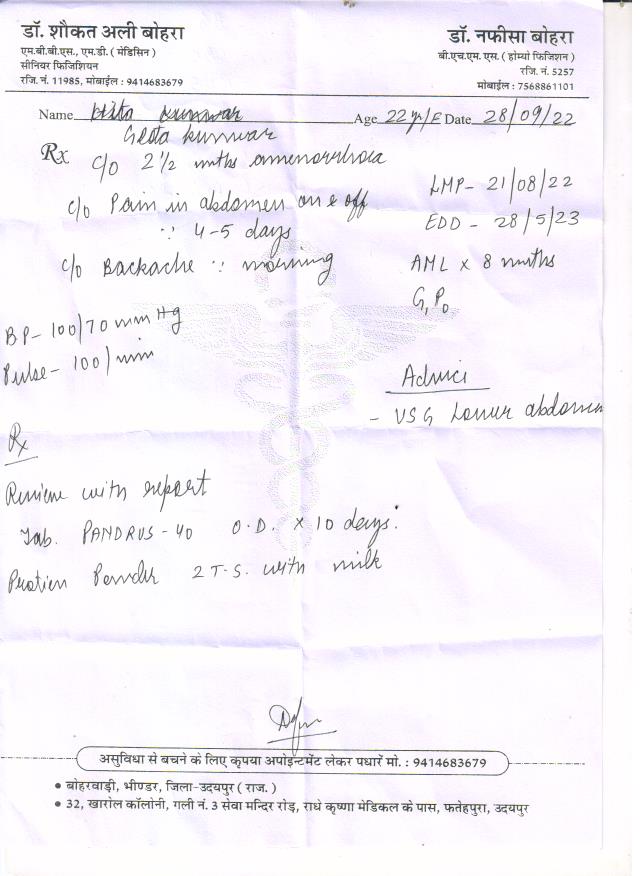 डॉ. शौकत अली बोहरा
एम.बी.बी.एस., एम.डी. ( मेडिसिन )
सीनियर फिजिशियन
रजि. नं. 11985, मोबाईल : 9414683679
डॉ. नफीसा बोहरा
बी.एच.एम. एस. ( होम्यो फिजिशन )
रजि. नं. 5257
मोबाईल : 7568861101
Name kunwar Age 22 yr/F Date 28/09/22
Geeta kunwar
Rx
c/o 2 1/2 mths amenorrhoea
LMP - 21/08/22
c/o Pain in abdomen on & off
∵ 4-5 days
EDD - 28/5/23
c/o Backache ∵ morning
AML x 8 mnths
G₁P₀
BP - 100/70 mm Hg
Pulse - 100/min
Advice
- USG Lower abdomen
Rx
Review with report
Tab. PANDRUS - 40 O.D. x 10 days.
Protien Powder 2 T.S. with milk
असुविधा से बचने के लिए कृपया अपोइन्टमेंट लेकर पधारें मो. : 9414683679
• बोहरवाड़ी, भीण्डर, जिला-उदयपुर ( राज. )
• 32, खारोल कॉलोनी, गली नं. 3 सेवा मन्दिर रोड़, राधे कृष्णा मेडिकल के पास, फतेहपुरा, उदयपुर